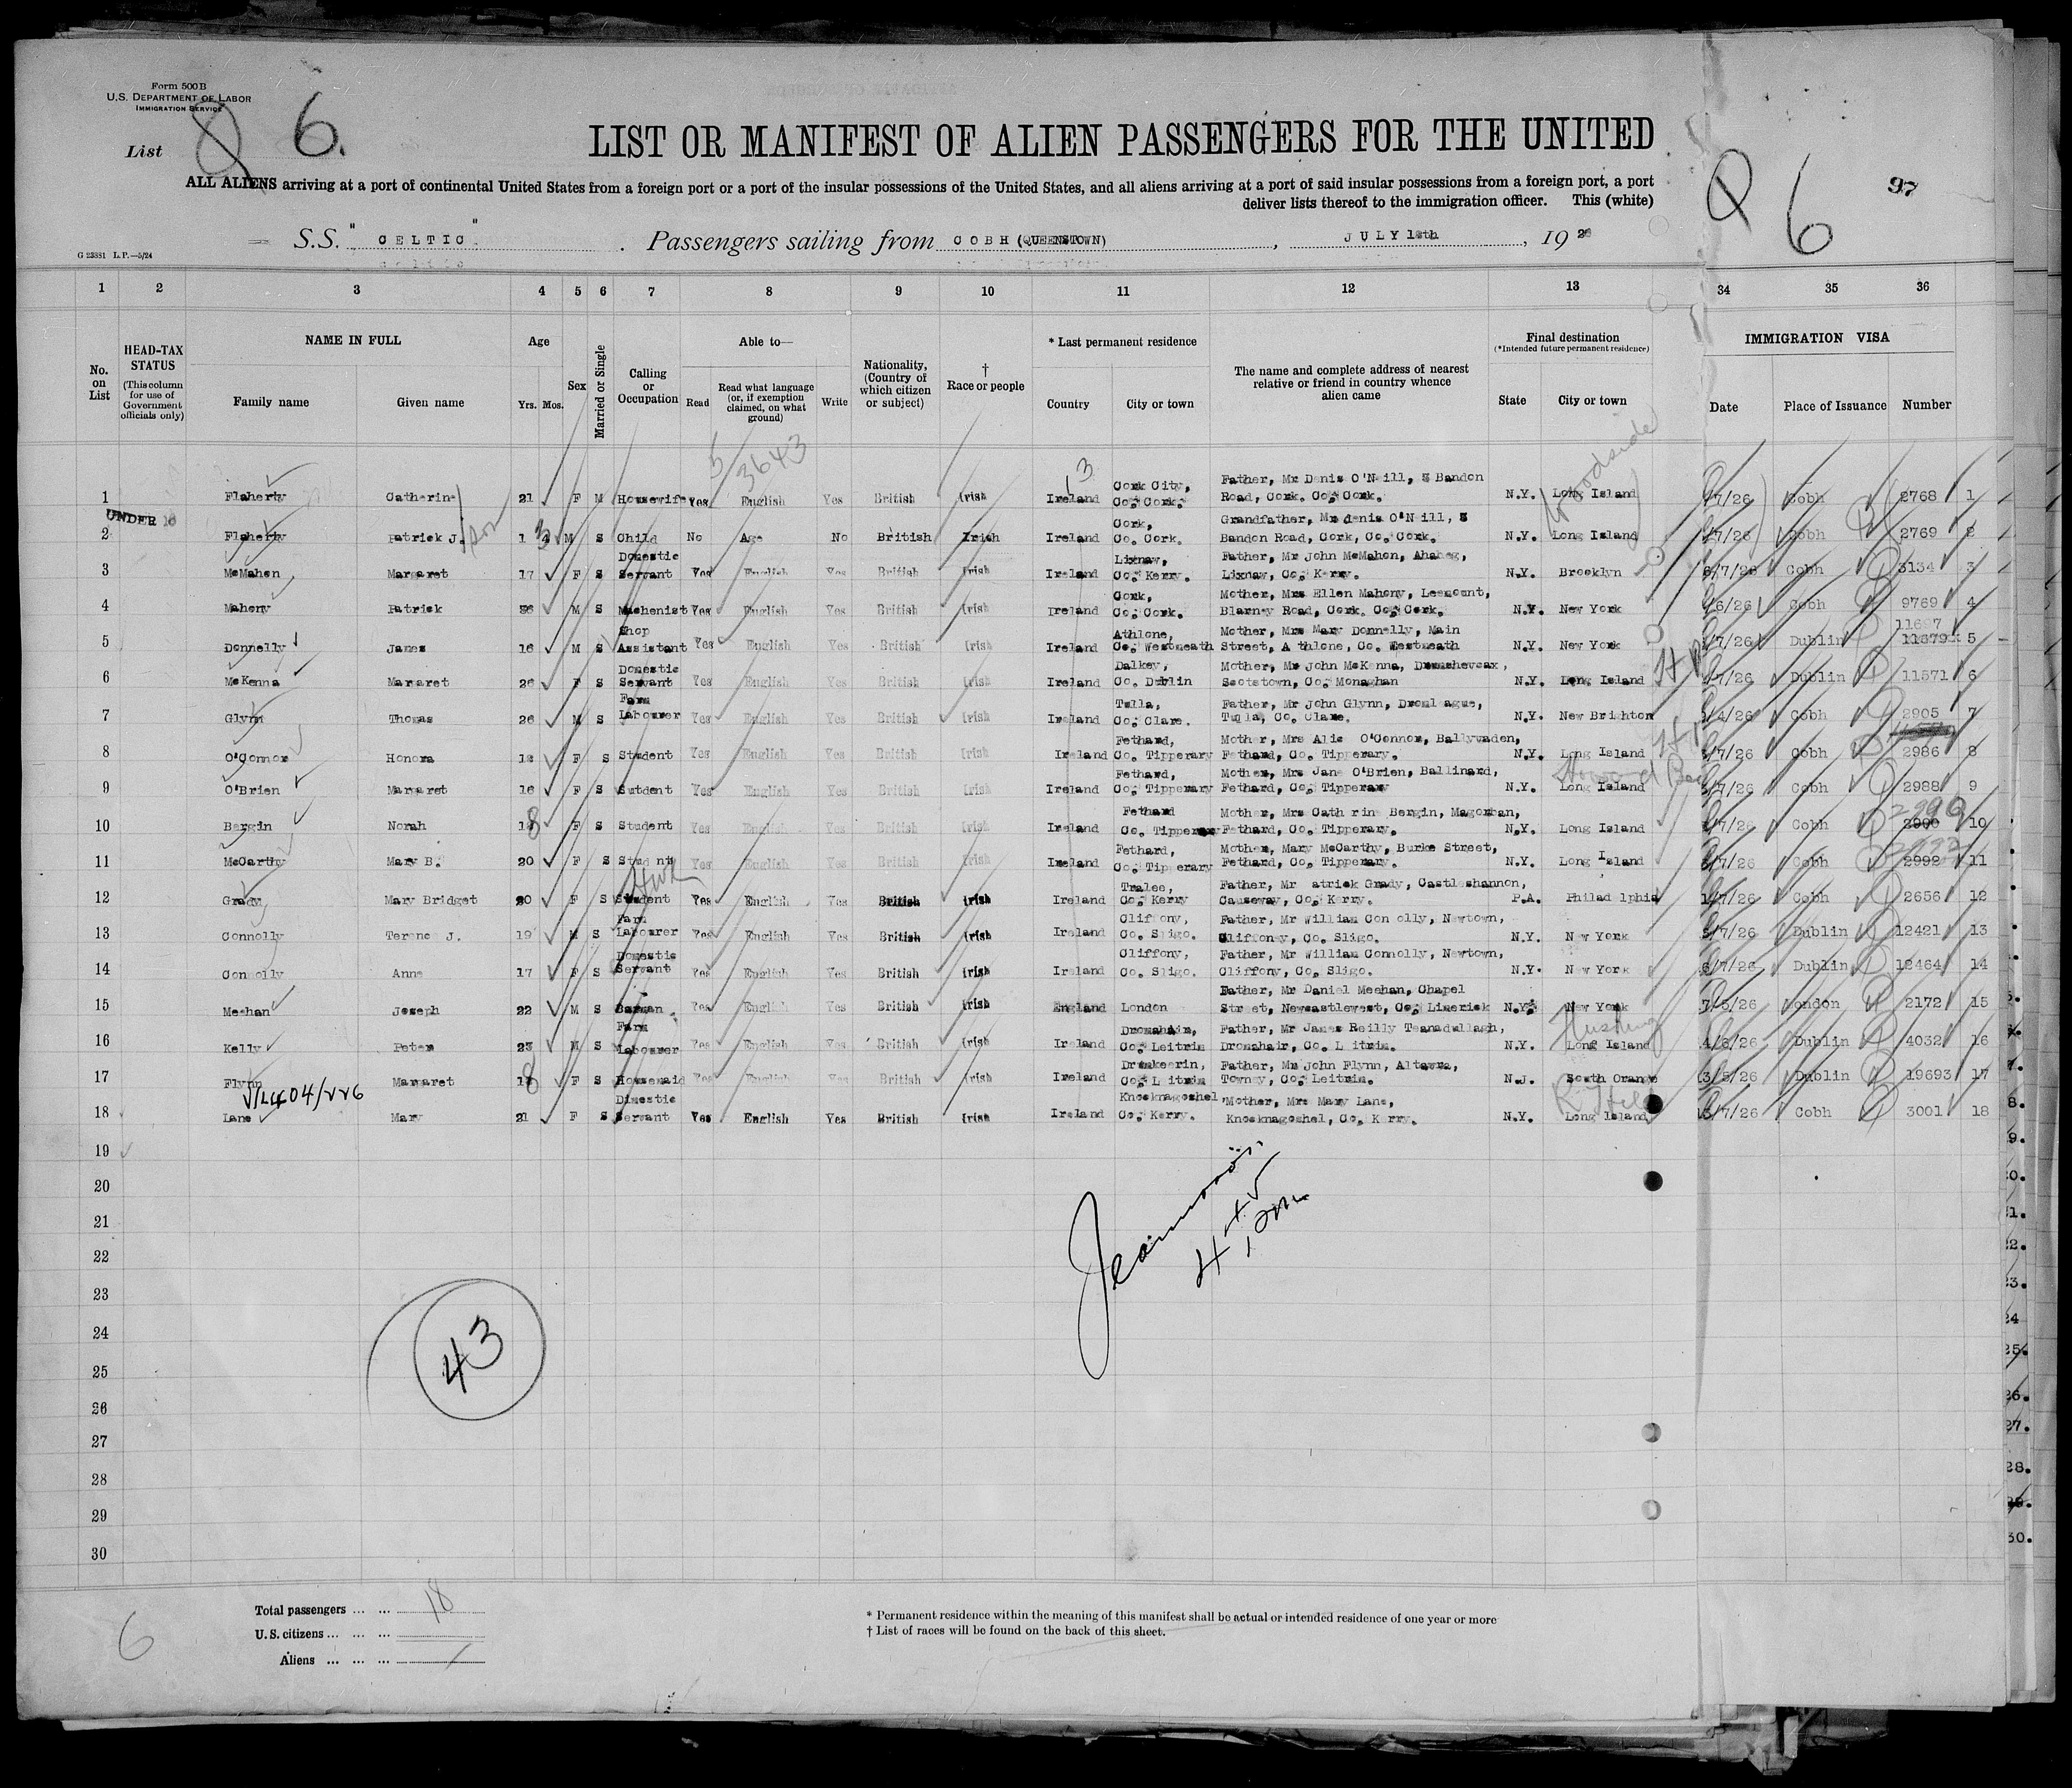 Form 500 B
U.S. DEPARTMENT OF LABOR
IMMIGRATION SERVICE
List 6.
LIST OR MANIFEST OF ALIEN PASSENGERS FOR THE UNITED
ALL ALIENS arriving at a port of continental United States from a foreign port or a port of the insular possessions of the United States, and all aliens arriving at a port of said insular possessions from a foreign port, a port
deliver lists thereof to the immigration officer. This (white)
6
97
S.S. " CELTIC " Passengers sailing from COBH (QUEENSTOWN), JULY 18th, 1926
G 23881 L.P.—5/24
1 2 3 4 5 6 7 8 9 10 11 12 13 34 35 36
No. on List
HEAD-TAX STATUS (This column for use of Government officials only)
NAME IN FULL Family name Given name
Age Yrs. Mos.
Sex
Married or Single
Calling or Occupation
Able to— Read Read what language (or, if exemption claimed, on what ground) Write
Nationality, (Country of which citizen or subject)
† Race or people
* Last permanent residence Country City or town
The name and complete address of nearest relative or friend in country whence alien came
Final destination (*Intended future permanent residence) State City or town
IMMIGRATION VISA Date Place of Issuance Number
5 3643
3
Woodside
1 Flaherty Catherine 21 F M Housewife Yes English Yes British Irish Ireland Cork City, Co. Cork. Father, Mr Denis O'Neill, 5 Bandon Road, Cork. Co. Cork. N.Y. Long Island /7/26 Cobh 2768 1
UNDER 16
2 Flaherty Patrick J. son 1 3 M S Child No Age No British Irish Ireland Cork, Co. Cork. Grandfather, Mr denis O'Neill, 5 Bandon Road, Cork, Co. Cork. N.Y. Long Island /7/26 Cobh 2769 2
3 McMahon Margaret 17 F S Domestic Servant Yes English Yes British Irish Ireland Lixnaw, Co. Kerry. Father, Mr John McMahon, Ahabeg, Lixnaw, Co. Kerry. N.Y. Brooklyn 6/7/26 Cobh 3134 3
4 Mahony Patrick M S Machenist Yes English Yes British Irish Ireland Cork, Co. Cork. Mother, Mrs Ellen Mahony, Leemount, Blarney Road, Cork. Co. Cork. N.Y. New York /6/26 Cobh 9769 4
5 Donnelly James 16 M S Shop Assistant Yes English Yes British Irish Ireland Athlone, Co. Westmeath Mother, Mrs Mary Donnelly, Main Street, A thlone, Co. Westmeath N.Y. New York /7/26 Dublin 11697 11679 5
6 McKenna Margaret 26 F S Domestic Servant Yes English Yes British Irish Ireland Dalkey, Co. Dublin Mother, Mr John McKenna, Scotstown, Co. Monaghan N.Y. Long Island /7/26 Dublin 11571 6
7 Glynn Thomas 26 M S Farm Labourer Yes English Yes British Irish Ireland Tulla, Co. Clare. Father, Mr John Glynn, Tulla, Co. Clare. N.Y. New Brighton /4/26 Cobh 2905 7
8 O'Connor Honora F S Student Yes English Yes British Irish Ireland Fethard, Co. Tipperary Mother, Mrs Alic O'Connor, Fethard, Co. Tipperary. N.Y. Long Island /7/26 Cobh 2986 8
9 O'Brien Margaret 16 F S Sutdent Yes English Yes British Irish Ireland Fethard, Co. Tipperary Mother, Mrs Jane O'Brien, Ballinard, Fethard, Co. Tipperary N.Y. Long Island /7/26 Cobh 2988 9
10 Bergin Norah 18 F S Student Yes English Yes British Irish Ireland Fethard Co. Tipperar Mother, Mrs Cath rin Bergin, Magorban, Fethard, Co. Tipperary. N.Y. Long Island /7/26 Cobh 2990 10
11 McCarthy Mary B. 20 F S Stud nt Yes English Yes British Irish Ireland Fethard, Co. Tip erary Mother, Mary McCarthy, Burke Street, Fethard, Co. Tipperary. N.Y. Long Island /7/26 Cobh 2992 11
12 Grady Mary Bridget 20 F S Student Yes English Yes British Irish Ireland Tralee, Co. Kerry Father, Mr atrick Grady, Castleshannon, Causeway, Co. Kerry. P.A. Philad lphia /7/26 Cobh 2656 12
13 Connolly Terenc J. 19 M S Farm Labourer Yes English Yes British Irish Ireland Cliffony, Co. Sligo. Father, Mr William Con olly, Newtown, Cliffoney, Co. Sligo. N.Y. New York /7/26 Dublin 12421 13
14 Connolly Anne 17 F S Domestic Servant Yes English Yes British Irish Ireland Cliffony, Co. Sligo. Father, Mr William Connolly, Newtown, Cliffony, Co. Sligo. N.Y. New York 6/7/26 Dublin 12464 14
15 Meehan Joseph 22 M S Barman Yes English Yes British Irish England London Father, Mr Daniel Meehan, Chapel Street, Newcastlewest, Co. Limerick N.Y. New York 7/5/26 London 2172 15
Flushing
16 Kelly Peter 23 M S Farm Labourer Yes English Yes British Irish Ireland Dromahair, Co. Leitrim Father, Mr James Reilly Dromahair, Co. L itrim. N.Y. Long Island 4/6/26 Dublin 4032 16
17 Flynn Margaret 18 F S Housemaid Yes English Yes British Irish Ireland Drumkeerin, Co. L itrim Father, Mr John Flynn, Altavra, Towney, Co. Leitrim. N.J. South Orange 3/5/26 Dublin 19693 17
18 Lane Mary 21 F S Dimestic Servant Yes English Yes British Irish Ireland Knocknagoshel Co. Kerry. Mother, Mrs Mary Lane, Knocknagoshel, Co. Kerry. N.Y. Long Island 13/7/26 Cobh 3001 18
19
20
21
22
23
24
25
26
27
28
29
30
43
Total passengers ... ... 18
U.S. citizens ... ... ...
Aliens ... ... ...
6
* Permanent residence within the meaning of this manifest shall be actual or intended residence of one year or more
† List of races will be found on the back of this sheet.